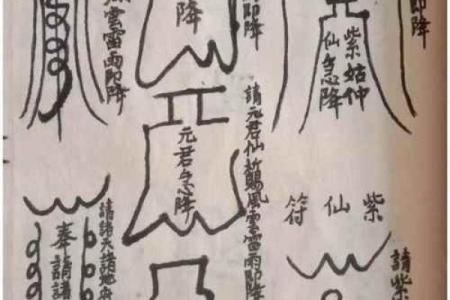 即降
紫姑仲
仙急降
即降
降
雲雷雨即降
紫仙符
請紫
請元君仙祈賜風雲雷雨即降
元君急降
請諸天諸地府
奉請諸